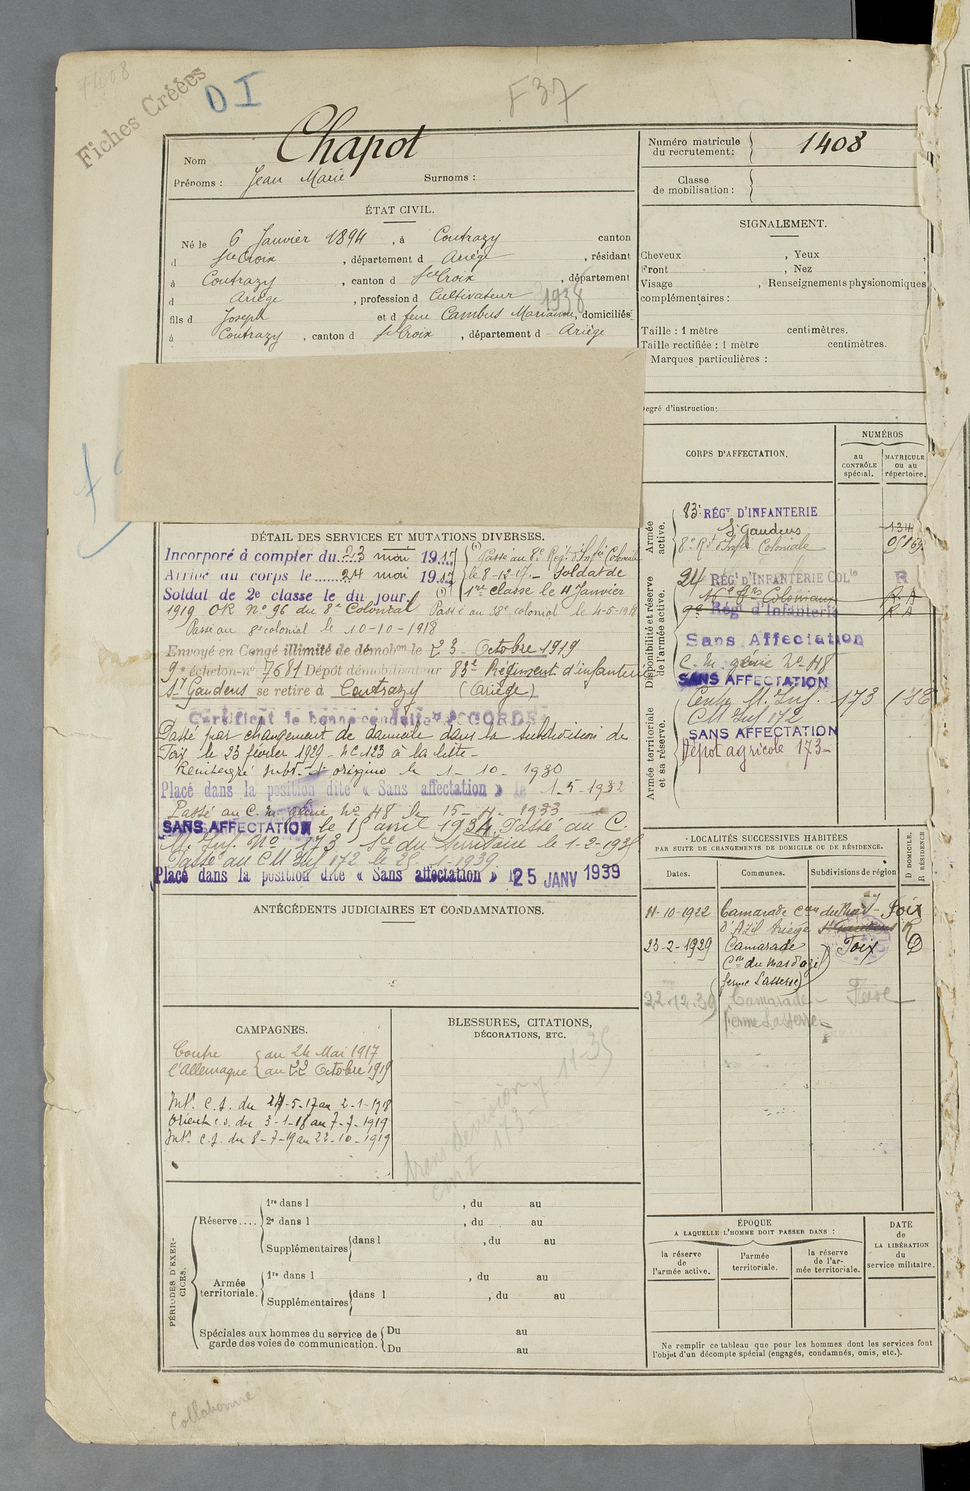 1408
Fiches Créées
DI
F37
Nom Chapot
Prénoms : Jean Marie Surnoms :
Numéro matricule du recrutement : 1408
Classe de mobilisation :
ÉTAT CIVIL.
Né le 6 Janvier 1894, à Contrazy canton
d Ste Croix, département d Ariège, résidant
à Contrazy, canton d Ste Croix, département
d Ariège, profession d Cultivateur 1938
fils d Joseph et d feue Cambus Marianne, domiciliés
à Contrazy, canton d Ste Croix, département d Ariège
SIGNALEMENT.
Cheveux , Yeux ,
Front , Nez
Visage , Renseignements physionomiques
complémentaires :
Taille : 1 mètre centimètres.
Taille rectifiée : 1 mètre centimètres.
Marques particulières :
egré d'instruction:
DÉTAIL DES SERVICES ET MUTATIONS DIVERSES.
Incorporé à compter du 23 mai 1917 (1) Passé au 8e Régt d'Infie Coloniale
Arrivé au corps le 24 mai 1917 le 8-12-17 - Soldat de
Soldat de 2e classe le du jour. (1) 1re classe le 4 Janvier
1919 OR No 96 du 8e Colonial Passé au 38e colonial le 4-5-1918
Passé au 8e colonial le 10-10-1918
Envoyé en Congé illimité de démobon le 23 Octobre 1919
9e échelon no 7681 Dépôt démobilisateur 83e Régiment d'infanterie
St Gaudens se retire à Contrazy (Ariège)
Certificat de bonne conduite ACCORDÉ
Passé par changement de domicile dans la subdivision de
Foix le 23 février 1929 - No 123 à la liste -
Réintégré subt. d'origine le 1-10-1930
Placé dans la position dite « Sans affectation » le 1-5-1932
Passé au C. M. génie No 48 le 15-4-1933
SANS AFFECTATION le 15 avril 1934. Passé au C.
M. Inf. No 173 Sce du Territoire le 1-2-1938
Passé au CM Inf 172 le 25-1-1939
Placé dans la position dite « Sans affectation » le 25 JANV 1939
CORPS D'AFFECTATION.
NUMÉROS
au CONTRÔLE spécial.
MATRICULE ou au répertoire.
Armée active.
83e RÉGT D'INFANTERIE
St Gaudens
8e Rt d'Infie Coloniale
Disponibilité et réserve de l'armée active.
24 RÉGT D'INFANTERIE COLle R
9e Régt d'Infanterie
Sans Affectation
C. M. génie No 48
SANS AFFECTATION
Armée territoriale et sa réserve.
Centre M. Inf. 173
CM Inf 172
SANS AFFECTATION
Dépot agricole 173-
ANTÉCÉDENTS JUDICIAIRES ET CONDAMNATIONS.
LOCALITÉS SUCCESSIVES HABITÉES
PAR SUITE DE CHANGEMENTS DE DOMICILE OU DE RÉSIDENCE.
Dates. Communes. Subdivisions de région
D DOMICILE. R RÉSIDENCE
11-10-1922 Camarade Con du Mas- Foix
d'Azil Ariège St Gaudens R
23-2-1929 Camarade Foix D
Con du Mas d'azil
(ferme Lasserre)
22.12.39 Camarade - Foix
ferme Lasserre -
CAMPAGNES.
Contre du 24 Mai 1917
l'Allemagne au 22 Octobre 1919
Intr C.S. du 24-5-17 au 2-1-1918
Orient c.s. du 3-1-18 au 7-7-1919
Intr C.S. du 8-7-19 au 22-10-1919
BLESSURES, CITATIONS,
DÉCORATIONS, ETC.
173-
PÉRIODES D'EXERCICES.
Réserve....
1re dans l , du au
2e dans l , du au
Supplémentaires dans l , du au
Armée territoriale.
1re dans l , du au
Supplémentaires dans l , du au
Spéciales aux hommes du service de garde des voies de communication.
Du au
Du au
ÉPOQUE
A LAQUELLE L'HOMME DOIT PASSER DANS :
la réserve de l'armée active.
l'armée territoriale.
la réserve de l'armée territoriale.
DATE de LA LIBÉRATION du service militaire.
Ne remplir ce tableau que pour les hommes dont les services font
l'objet d'un décompte spécial (engagés, condamnés, omis, etc.).